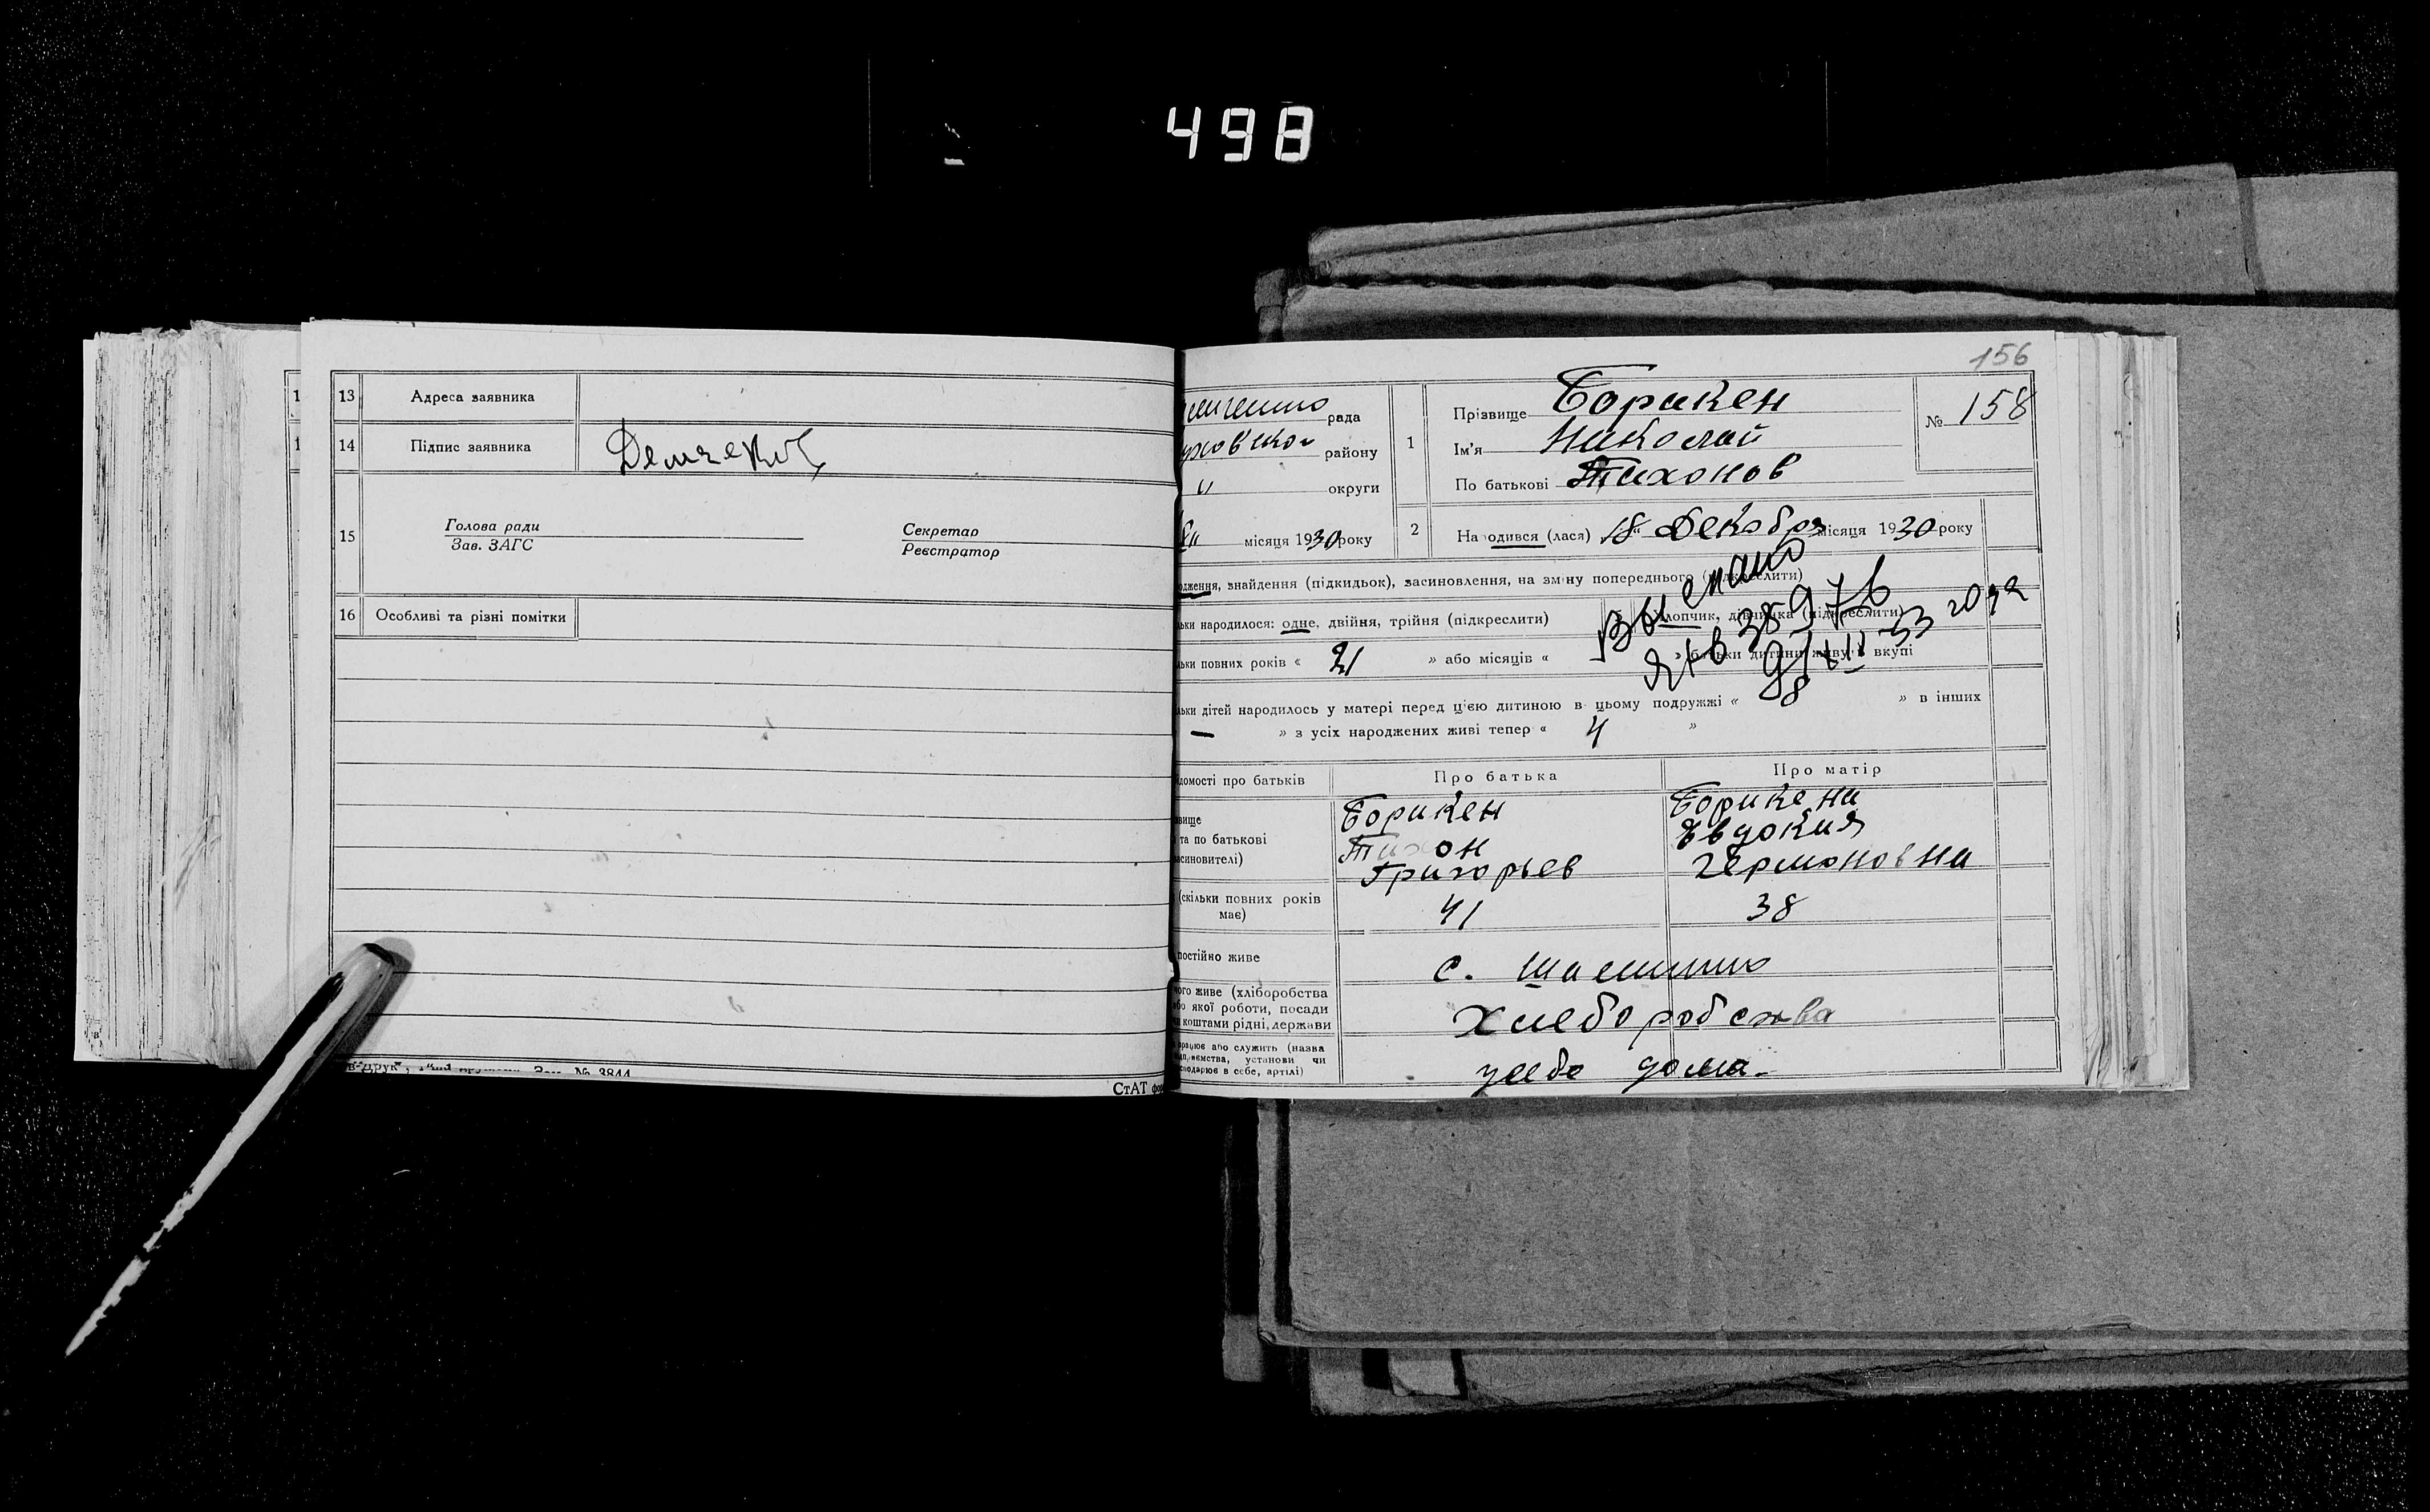 498
13 Адреса заявника
14 Підпис заявника
15 Голова ради
Зав. ЗАГС
Секретар
Реєстратор
16 Особливі та різні помітки
Зак. № 3844
СтАТ
156
рада
району
" округи
місяця 1930 року
1 Прізвище Борикен
Ім'я Николай
По батькові Тихонов
№ 158
2 На одився (лася) 18 " Декабря місяця 1930 року
одження, знайдення (підкидьок), засиновлення, на зміну попереднього (підкреслити)
льки народилося: одне, двійня, трійня (підкреслити)
Хлопчик, дівчинка (підкреслити)
льки повних років « 21 » або місяців « » батьки дитини живуть вкупі
льки дітей народилось у матері перед ц'єю дитиною в цьому подружжі « 8 » в інших
— » з усіх народжених живі тепер « 4 »
домості про батьків
Про батька
Про матір
звище
та по батькові
асиновителі)
Борикен
Тихон
Григорьев
Борикени
Евдокия
Германовни
(скільки повних років має)
41
38
постійно живе
с.
ого живе (хліборобства
бо якої роботи, посади
коштами рідні, держави
Хлеборобства
рацює або служить (назва
установи чи
сподарює в себе, артілі)
у себе дома.